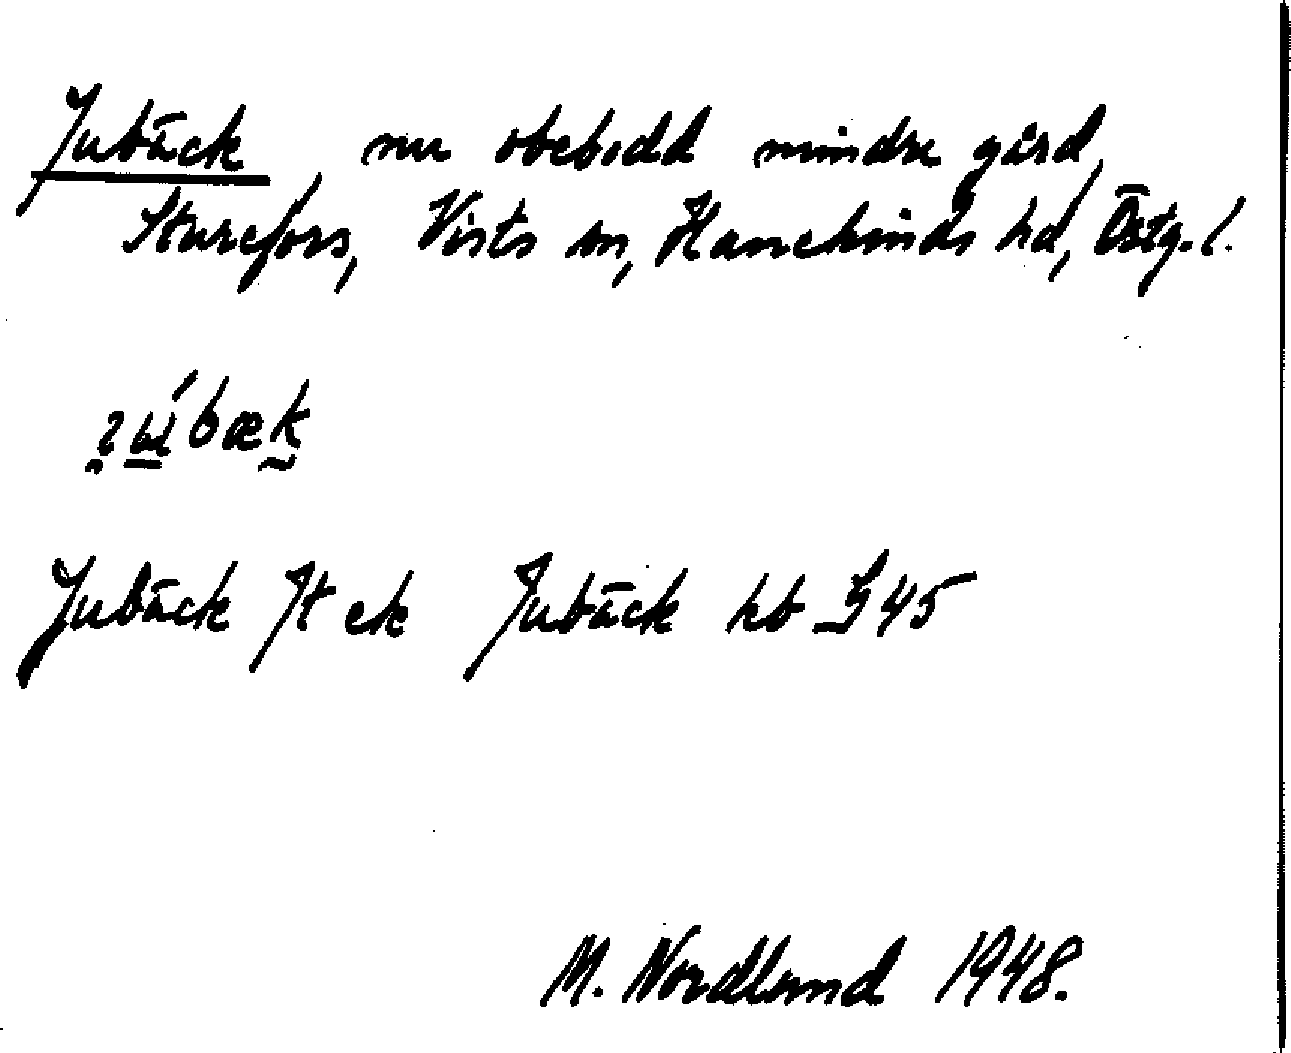 Jubäck, nu obebodd mindre gård,
Sturefors, Vists sn, Hanekinds hd, Östg. l.
Jubäck Jt ek Jubäck kb G 45
M. Nordlund 1948.